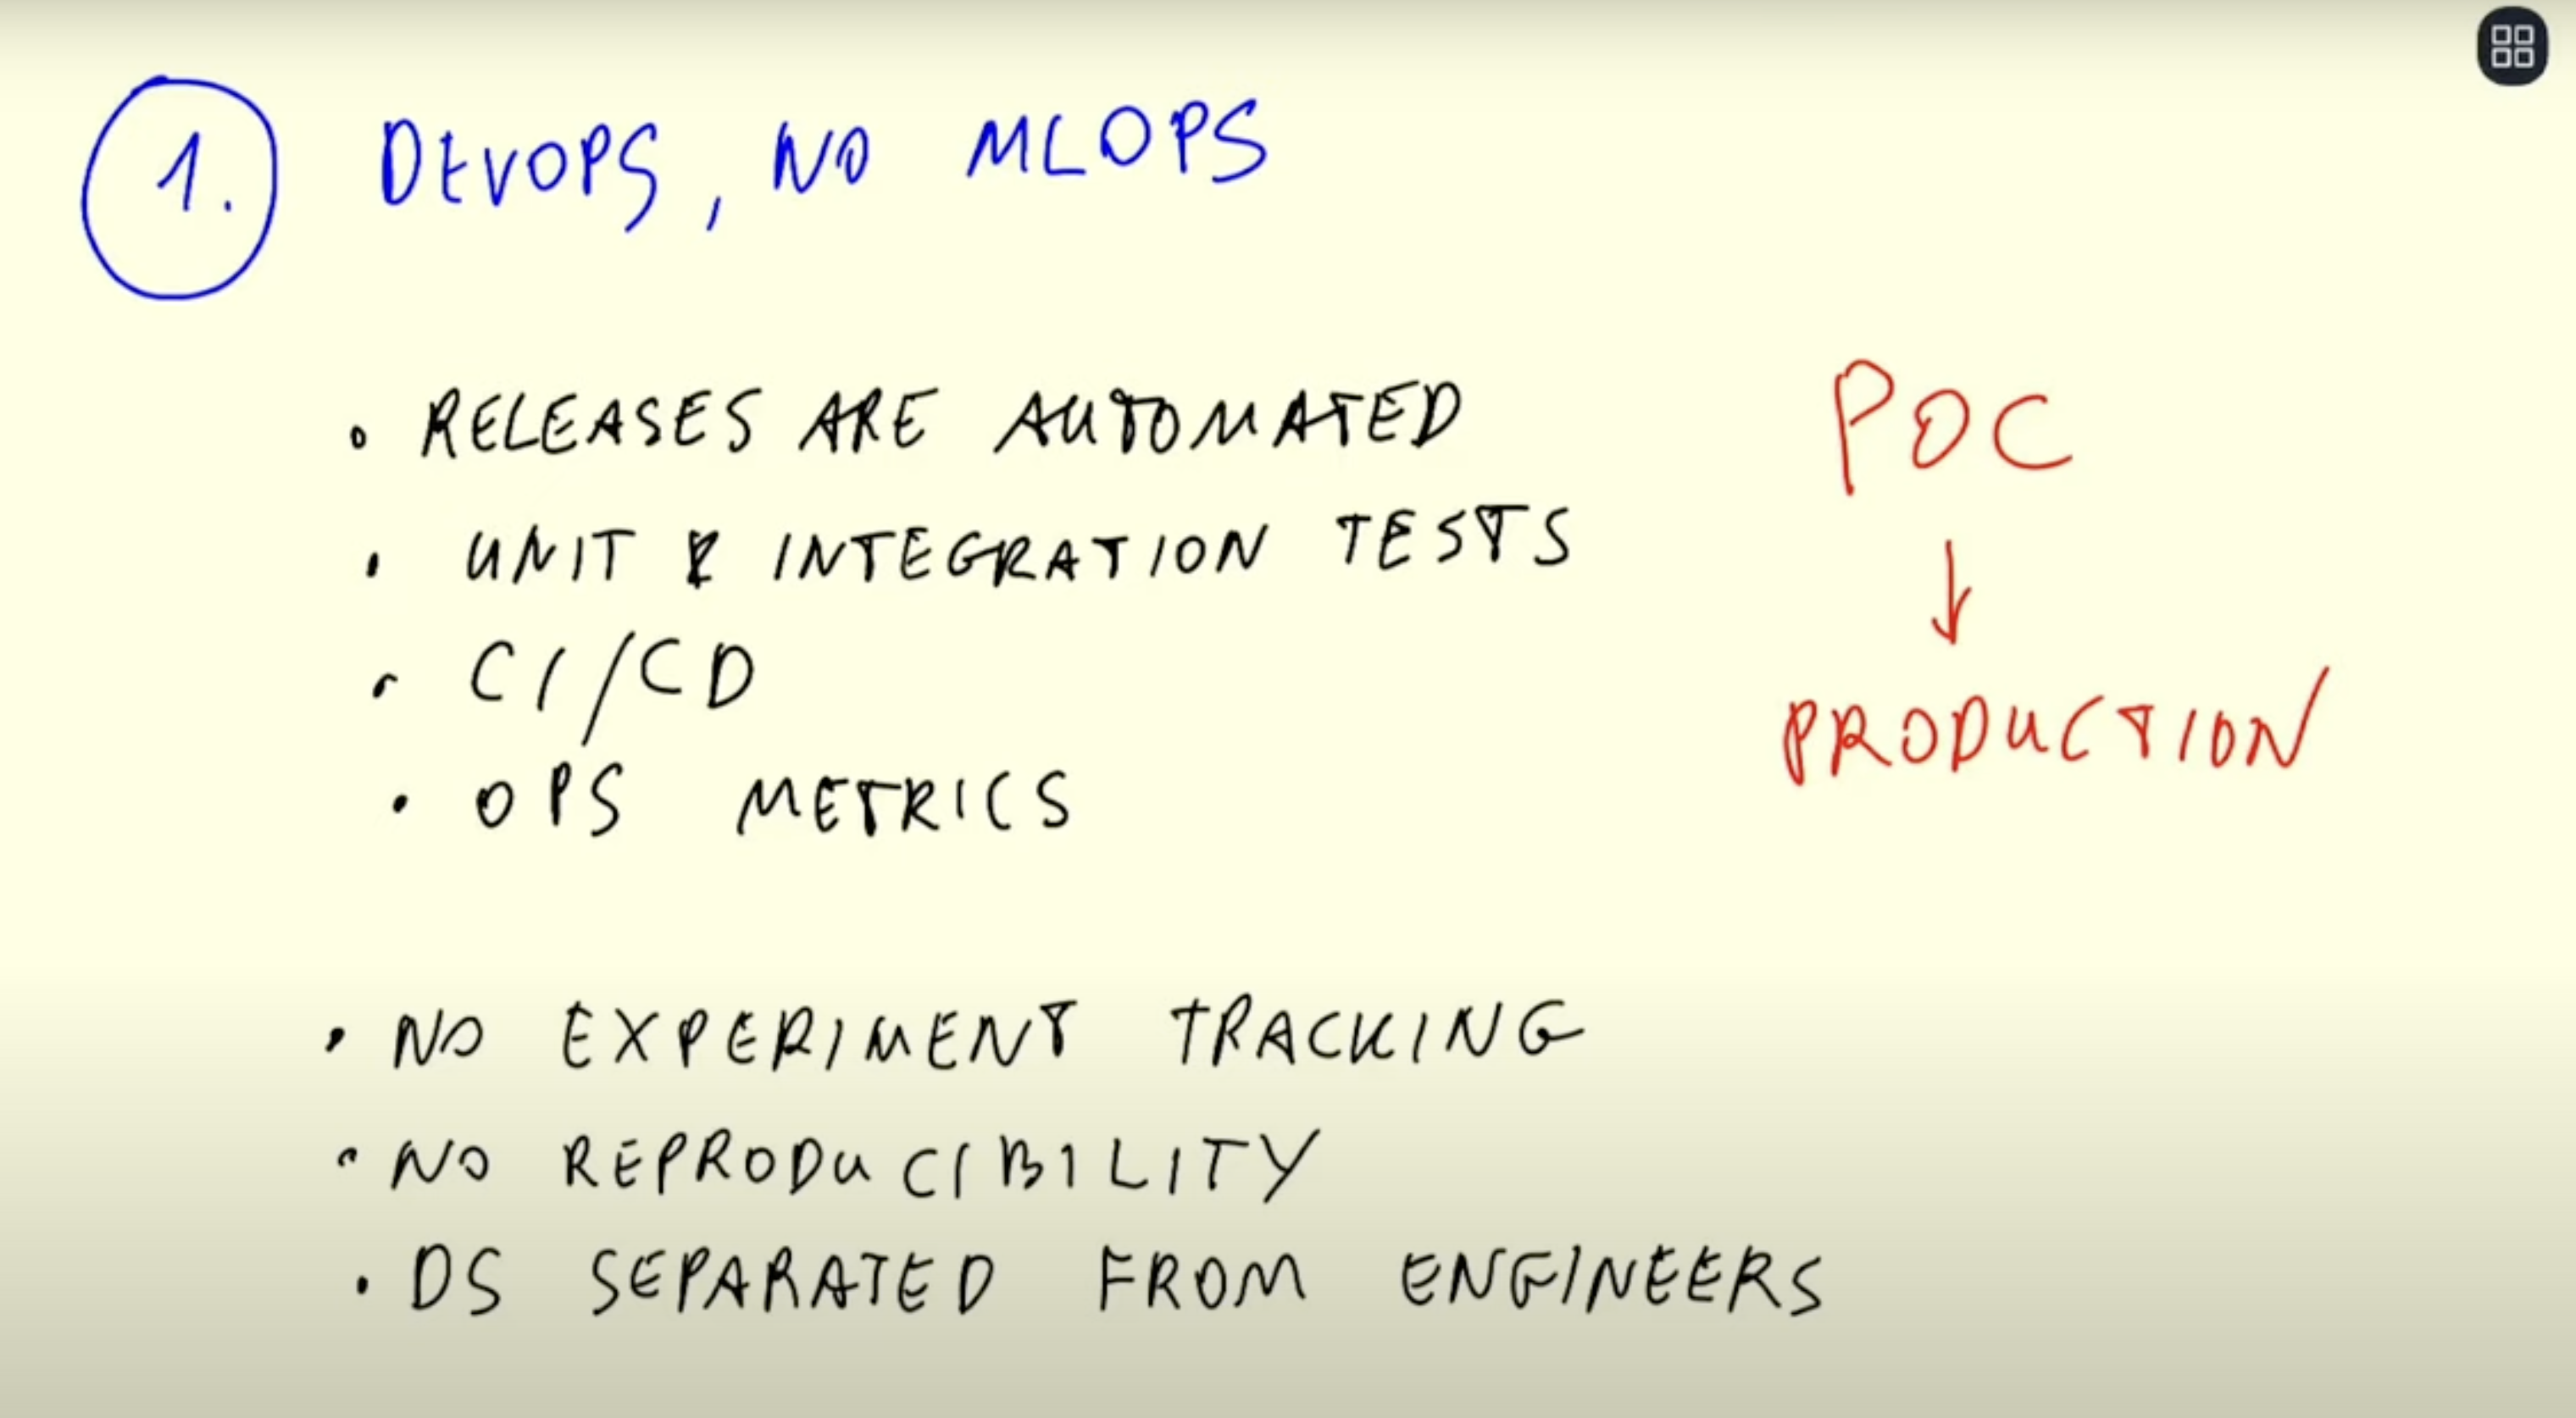 1. DEVOPS, NO MLOPS
• RELEASES ARE AUTOMATED
• UNIT & INTEGRATION TESTS
• CI/CD
• OPS METRICS
• NO EXPERIMENT TRACKING
• NO REPRODUCIBILITY
• DS SEPARATED FROM ENGINEERS
POC
↓
PRODUCTION